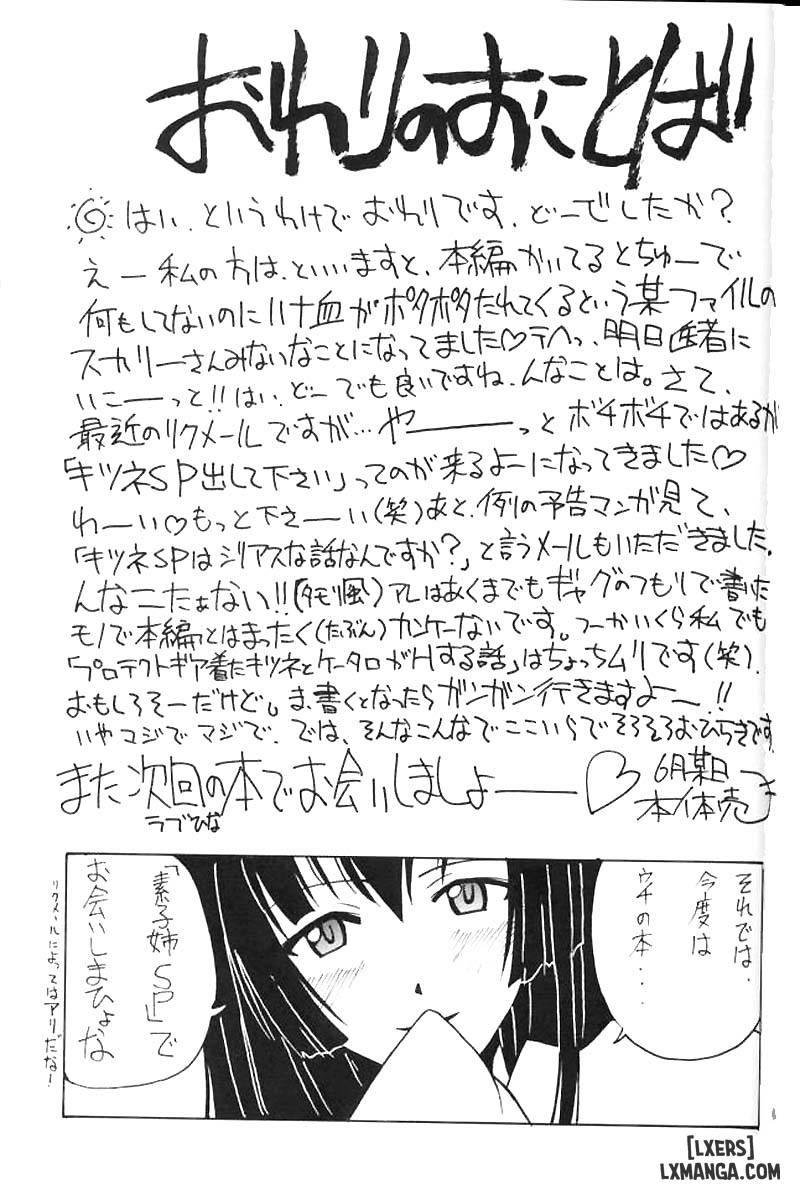 おわりのおことば
はい、というわけでおわりです、どーでしたか？
えー私の方は、といいますと、本編かいてるとちゅーで
何もしてないのに鼻血がポタポタたれてくるという某ファイルの
スカリーさんみないなことになってました♡テヘっ、明日医者に
いこーーっと!!はい、どーでも良いですね、んなことは。さて、
最近のリクメールですが…やーーーっとボチボチではあるが
「キツネSP出して下さい」ってのが来るよーになってきました♡
わーい♡もっと下さーい(笑)あと、例の予告マンガ見て、
「キツネSPはシリアスな話なんですか？」と言うメールもいただきました。
んなこたぁない!!(タモリ風)アレはあくまでもギャグのつもりで書いた
モノで本編とはまったく(たぶん)カンケーないです。つーかいくら私でも
「プロテクトギア着たキツネとケータロがHする話」はちょっちムリです(笑)。
おもしろそーだけど。ま、書くとなったらガンガン行きますよー!!
いやマジでマジで。では、そんなこんなでここいらでそろそろおひらきです
また次回の本でお会いしましょーーー♡
ラブひな
6月某日
本体売
それでは、
今度は
ウチの本・・・
「素子姉SP」で
お会いしまひょな
リクメールによってはアリだな！
[LXERS]
LXMANGA.COM